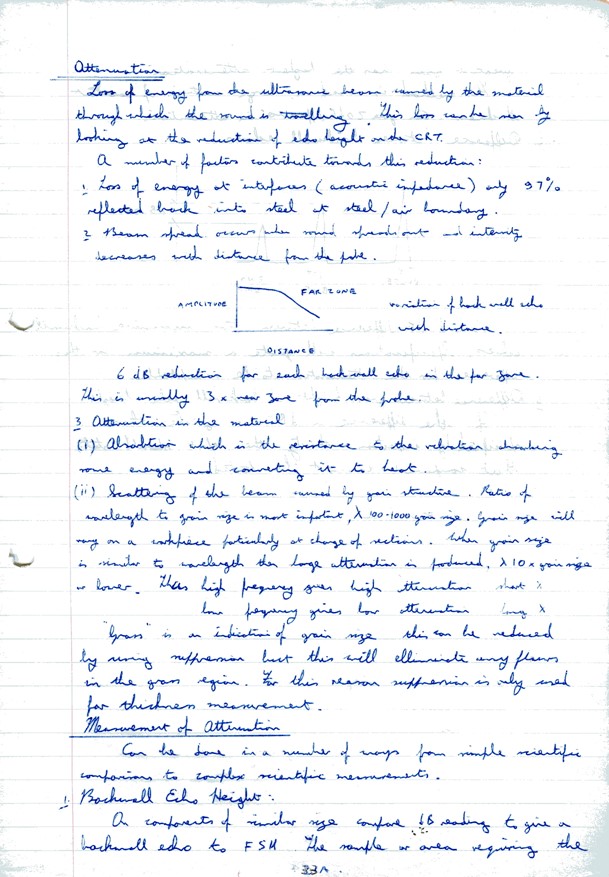 Attenuation
Loss of energy from the ultrasonic beam caused by the material
through which the sound is travelling. This loss can be seen by
looking at the reduction of echo height on the CRT.
A number of factors contribute towards this reduction:
1 Loss of energy at interfaces (acoustic impedance) only 97%
reflected back into steel at steel/air boundary.
2 Beam spread occurs when sound spreads out and intensity
decreases with distance from the probe.
AMPLITUDE
FAR ZONE
variation of back wall echo
with distance.
DISTANCE
6 dB reduction for each back wall echo in the far zone.
This is usually 3 x near zone from the probe.
3 Attenuation in the material
(i) Absorbtion which is the resistance to the vibration
some energy and converting it to heat.
(ii) Scattering of the beam caused by grain structure. Ratio of
wavelength to grain size is most important, λ 100-1000 grain size. Grain size will
vary on a workpiece particularly at change of sections. When grain size
is similar to wavelength then large attenuation is produced. λ 10 x grain size
or lower. Thus high frequency gives high attenuation short λ
low frequency gives low attenuation long λ
"Grass" is an indication of grain size this can be reduced
by using suppression but this will elliminate any flaws
in the grass region. For this reason suppression is only used
for thickness measurement.
Measurement of Attenuation
Can be done in a number of ways from simple scientific
comparisons to complex scientific measurements.
1. Backwall Echo Height:
On components of similar size compare dB reading to give a
backwall echo to FSH The sample or area requiring the
33A